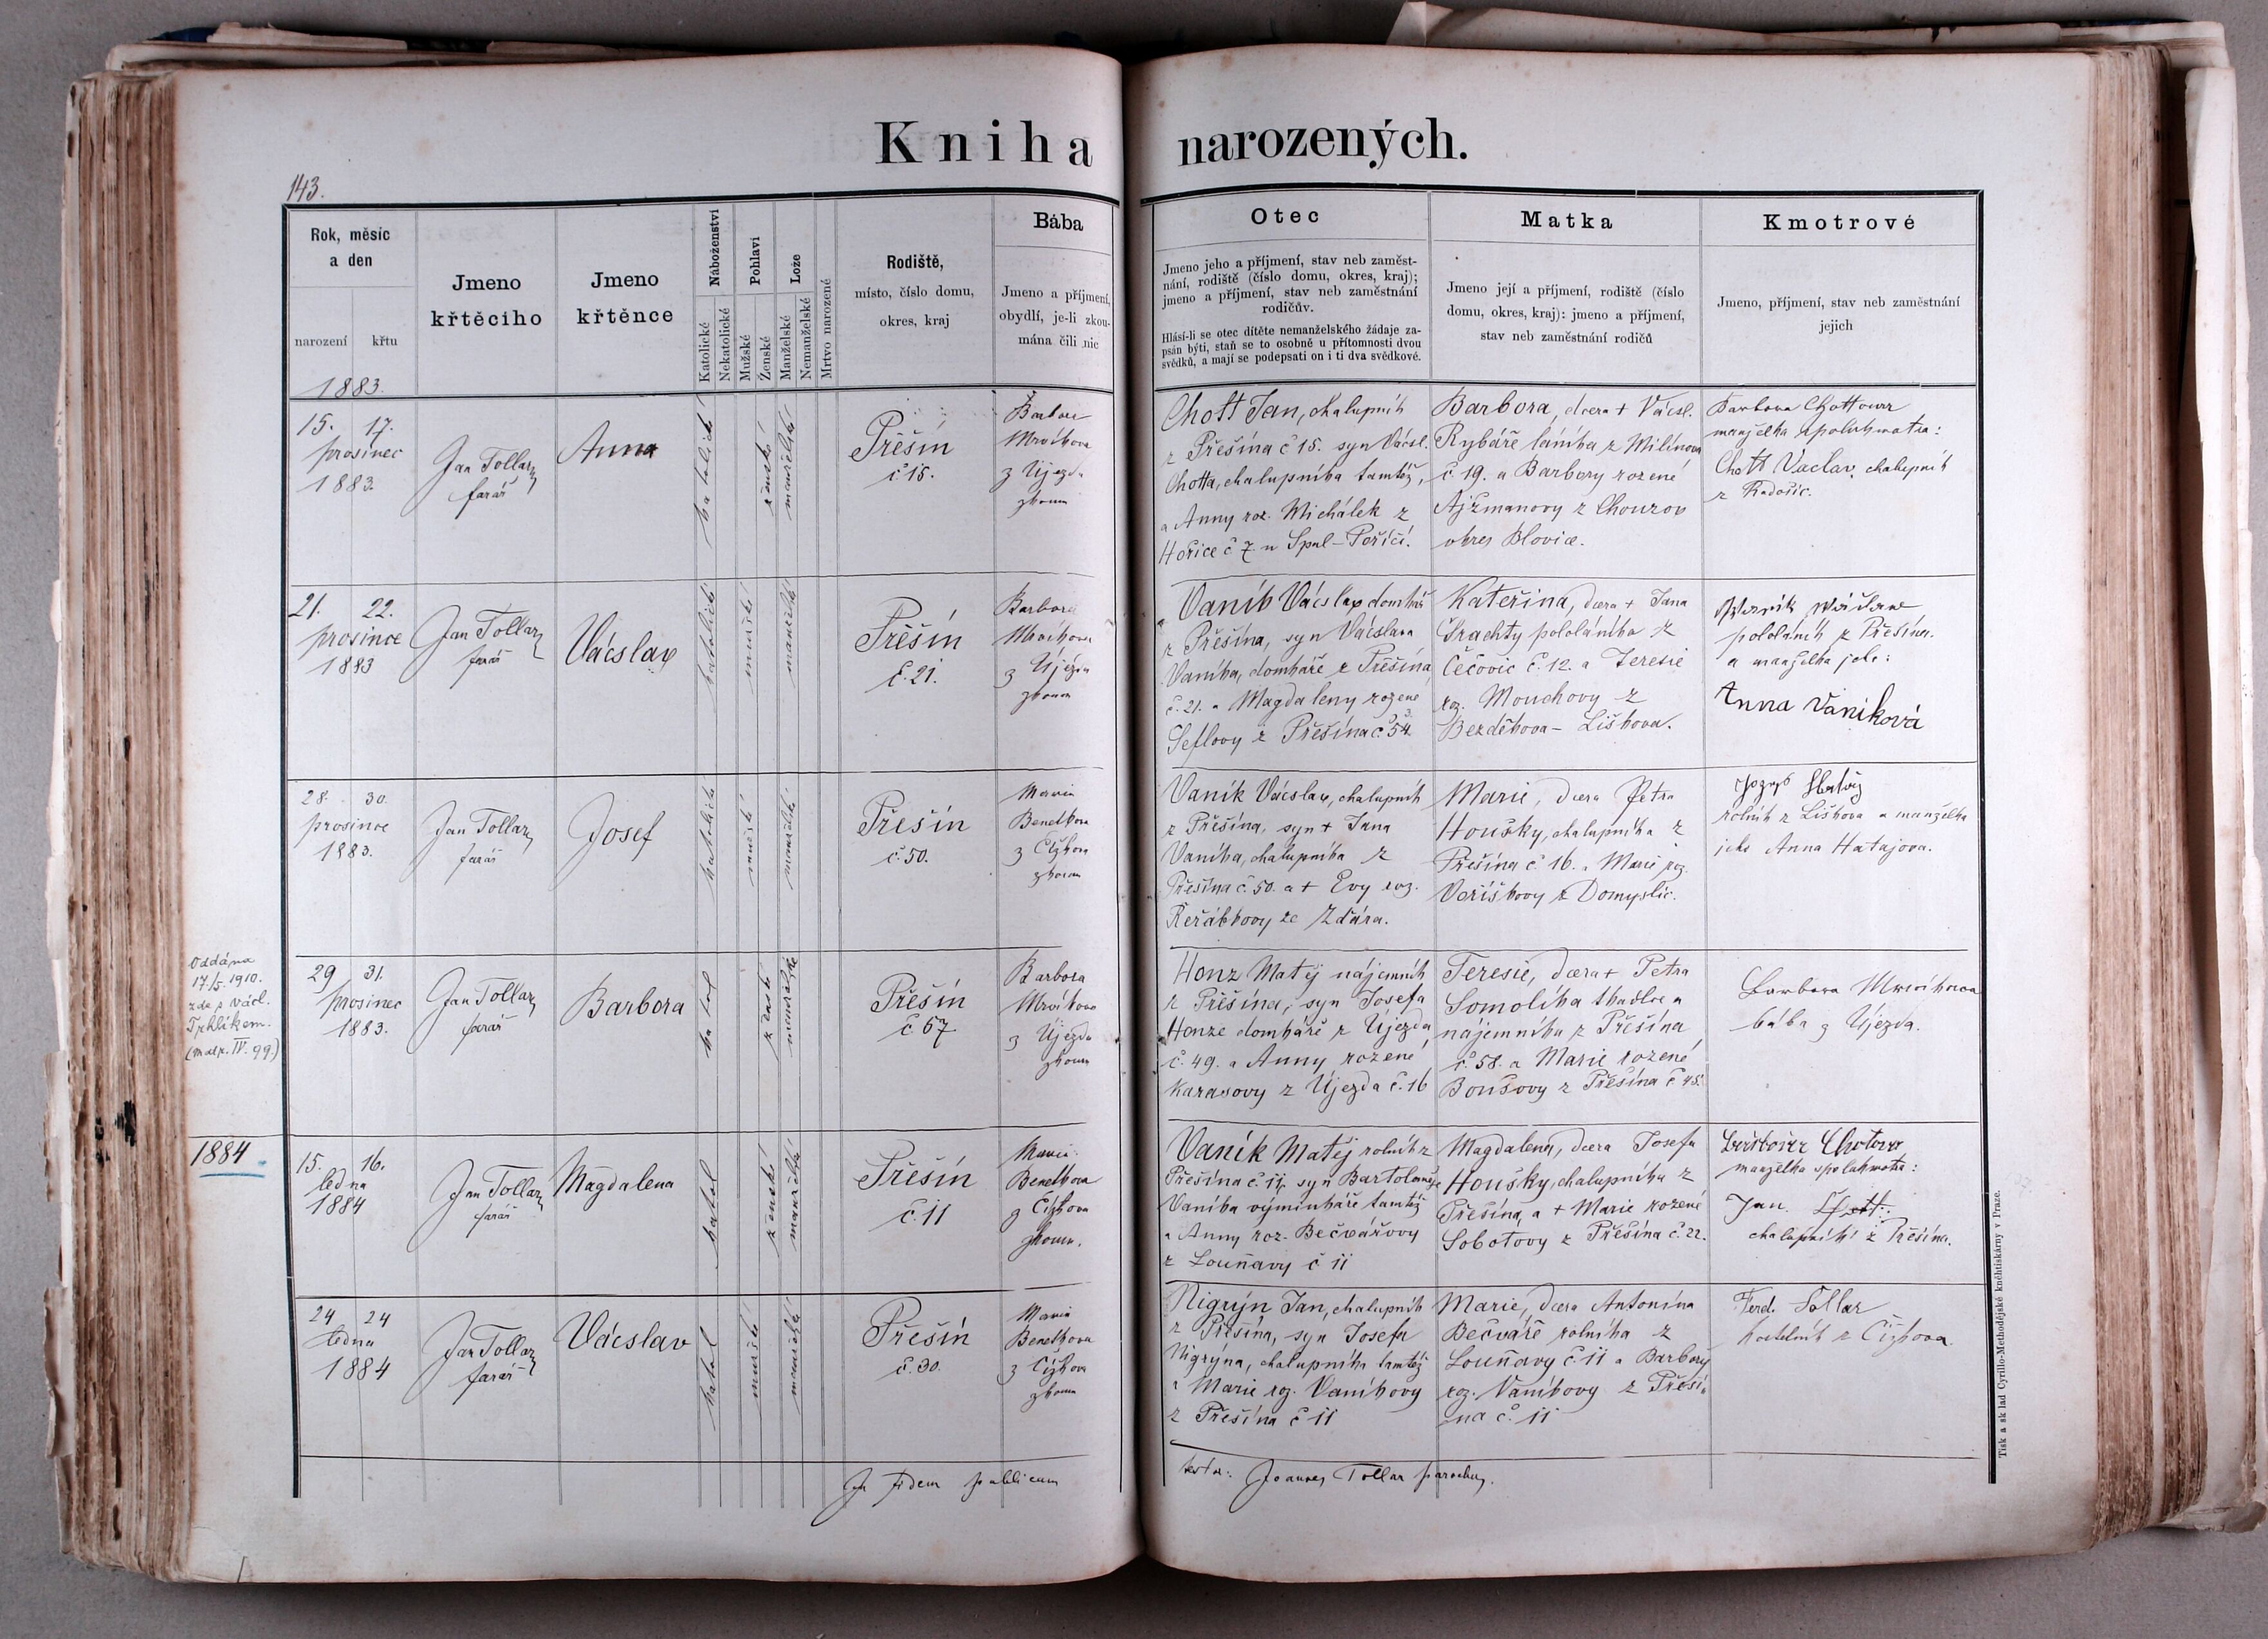 Kniha narozených.
143.
Rok, měsíc
a den
narození křtu
1883.
Jmeno
křtěcího
Jmeno
křtěnce
Náboženství
Katolické
Nekatolické
Pohlaví
Mužské
Ženské
Lože
Manželské
Nemanželské
Mrtvo narozené
Rodiště,
místo, číslo domu,
okres, kraj
Bába
Jmeno a příjmení,
obydlí, je-li zkou-
mána čili nic
Otec
Jmeno jeho a příjmení, stav neb zaměst-
nání, rodiště (číslo domu, okres, kraj);
jmeno a příjmení, stav neb zaměstnání
rodičův.
Hlásí-li se otec dítěte nemanželského žádaje za-
psán býti, staň se to osobně u přítomnosti dvou
svědků, a mají se podepsati on i ti dva svědkové.
Matka
Jmeno její a příjmení, rodiště (číslo
domu, okres, kraj): jmeno a příjmení,
stav neb zaměstnání rodičů
Kmotrové
Jmeno, příjmení, stav neb zaměstnání
jejich
15. 17.
prosinec
1883.
Jan Tollar
farář
Anna
katolické
ženské
manželské
Přešín
č 15.
Barbora
Mrvíkova
z Újezda
zkoum
Chott Jan, chalupník
z Přešína č 15. syn Vácsl.
Chotta, chalupníka tamtéž,
a Anny roz. Michálek z
Hořice č 7 u Spal-Poříčí.
Barbora, dcera + Vácsl.
Rybáře láníka z Milínova
č. 19. a Barbory rozené
Ajzmanovy z Chouzov
okres Blovice.
Barbora Chottova
manželka spolukmotra:
Chott Vaclav, chalupník
z Radošic.
21. 22.
prosince
1883
Jan Tollar
farář
Vácslav
katolické
mužské
manželské
Přešín
č. 21.
Barbora
Mrvíkova
z Újezda
zkoum
Vaník Vácslav domkář
z Přešína, syn Vácslava
Vaníka, domkáře z Přešína
č. 21. a Magdaleny rozené
Šeflovy z Přešína č. 54.
Kateřina, dcera + Jana
Šrachty pololáníka z
Čečovic č. 12. a Teresie
roz. Mouchovy z
Bezděkova - Liškova.
pololáník z Přešína.
a manželka jeho:
Anna Vaniková
28. 30.
prosince
1883.
Jan Tollar
farář
Josef
katolické
mužské
manželské
Přešín
č. 50.
Maria
Benetkova
z Čížkova
zkoum
Vaník Vácslav, chalupník
z Přešína, syn + Jana
Vaníka, chalupníka z
Přešína č. 50. a + Evy roz.
Řeřábkovy ze Žďára.
Marie, dcera Petra
Houšky, chalupníka z
Přešína č 16. a Marie roz.
Veříškovy z Domyslic.
rolník z Liškova a manželka
jeho Anna Hatajova.
Oddána
17./5. 1910.
zde s Václ.
Trhlíkem.
(matr. IV. 99)
29 31.
prosinec
1883.
Jan Tollar
farář
Barbora
katol
ženské
Přešín
č 67
Barbora
Mrvíkova
z Újezda
zkoum
Honz Matěj nájemník
z Přešína, syn Josefa
Honze domkáře z Újezda
č. 49. a Anny rozené
Karasovy z Újezda č. 16
Teresie, dcera + Petra
Somolíka tkadlce a
nájemníka z Přešína
č. 58. a Marie rozené
Boušovy z Přešína č 45.
Barbora Mrvíkova
bába z Újezda.
1884
15. 16.
ledna
1884
Jan Tollar
farář
Magdalena
katol
ženské
manželské
Přešín
č. 11
Maria
Benetkova
z Čížkova
zkoum.
Vaník Matěj rolník z
Přešína č 11, syn Bartoloměje
Vaníka výminkáře tamtéž
a Anny roz. Bečvářovy
z Louňavy č 11
Magdalena, dcera Josefa
Houšky, chalupníka z
Přešína, a + Marie rozené
Sobotovy z Přešína č. 22.
manželka spolukmotra:
Jan
chalupník z Přešína.
24 24
ledna
1884
Jan Tollar
farář
Vácslav
katol
mužské
manželské
Přešín
č. 30.
Maria
Benetkova
z Čížkova
zkoum
Nigrýn Jan, chalupník
z Přešína, syn Josefa
Nigrýna, chalupníka tamtéž
a Marie roz. Vaníkovy
z Přešína č 11
Marie, dcera Antonína
Bečváře rolníka z
Louňavy č. 11 a Barbory
roz. Vaníkovy z Přeší
na č. 11
Ferd. Tollar
z Čížkova
In fidem publicam
Joannes Tollar parochus.
Tisk a sklad Cyrillo-Methodějské kněhtiskárny v Praze.